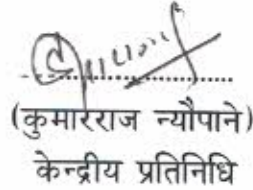 (कुमारराज न्यौपाने)
केन्द्रीय प्रतिनिधि